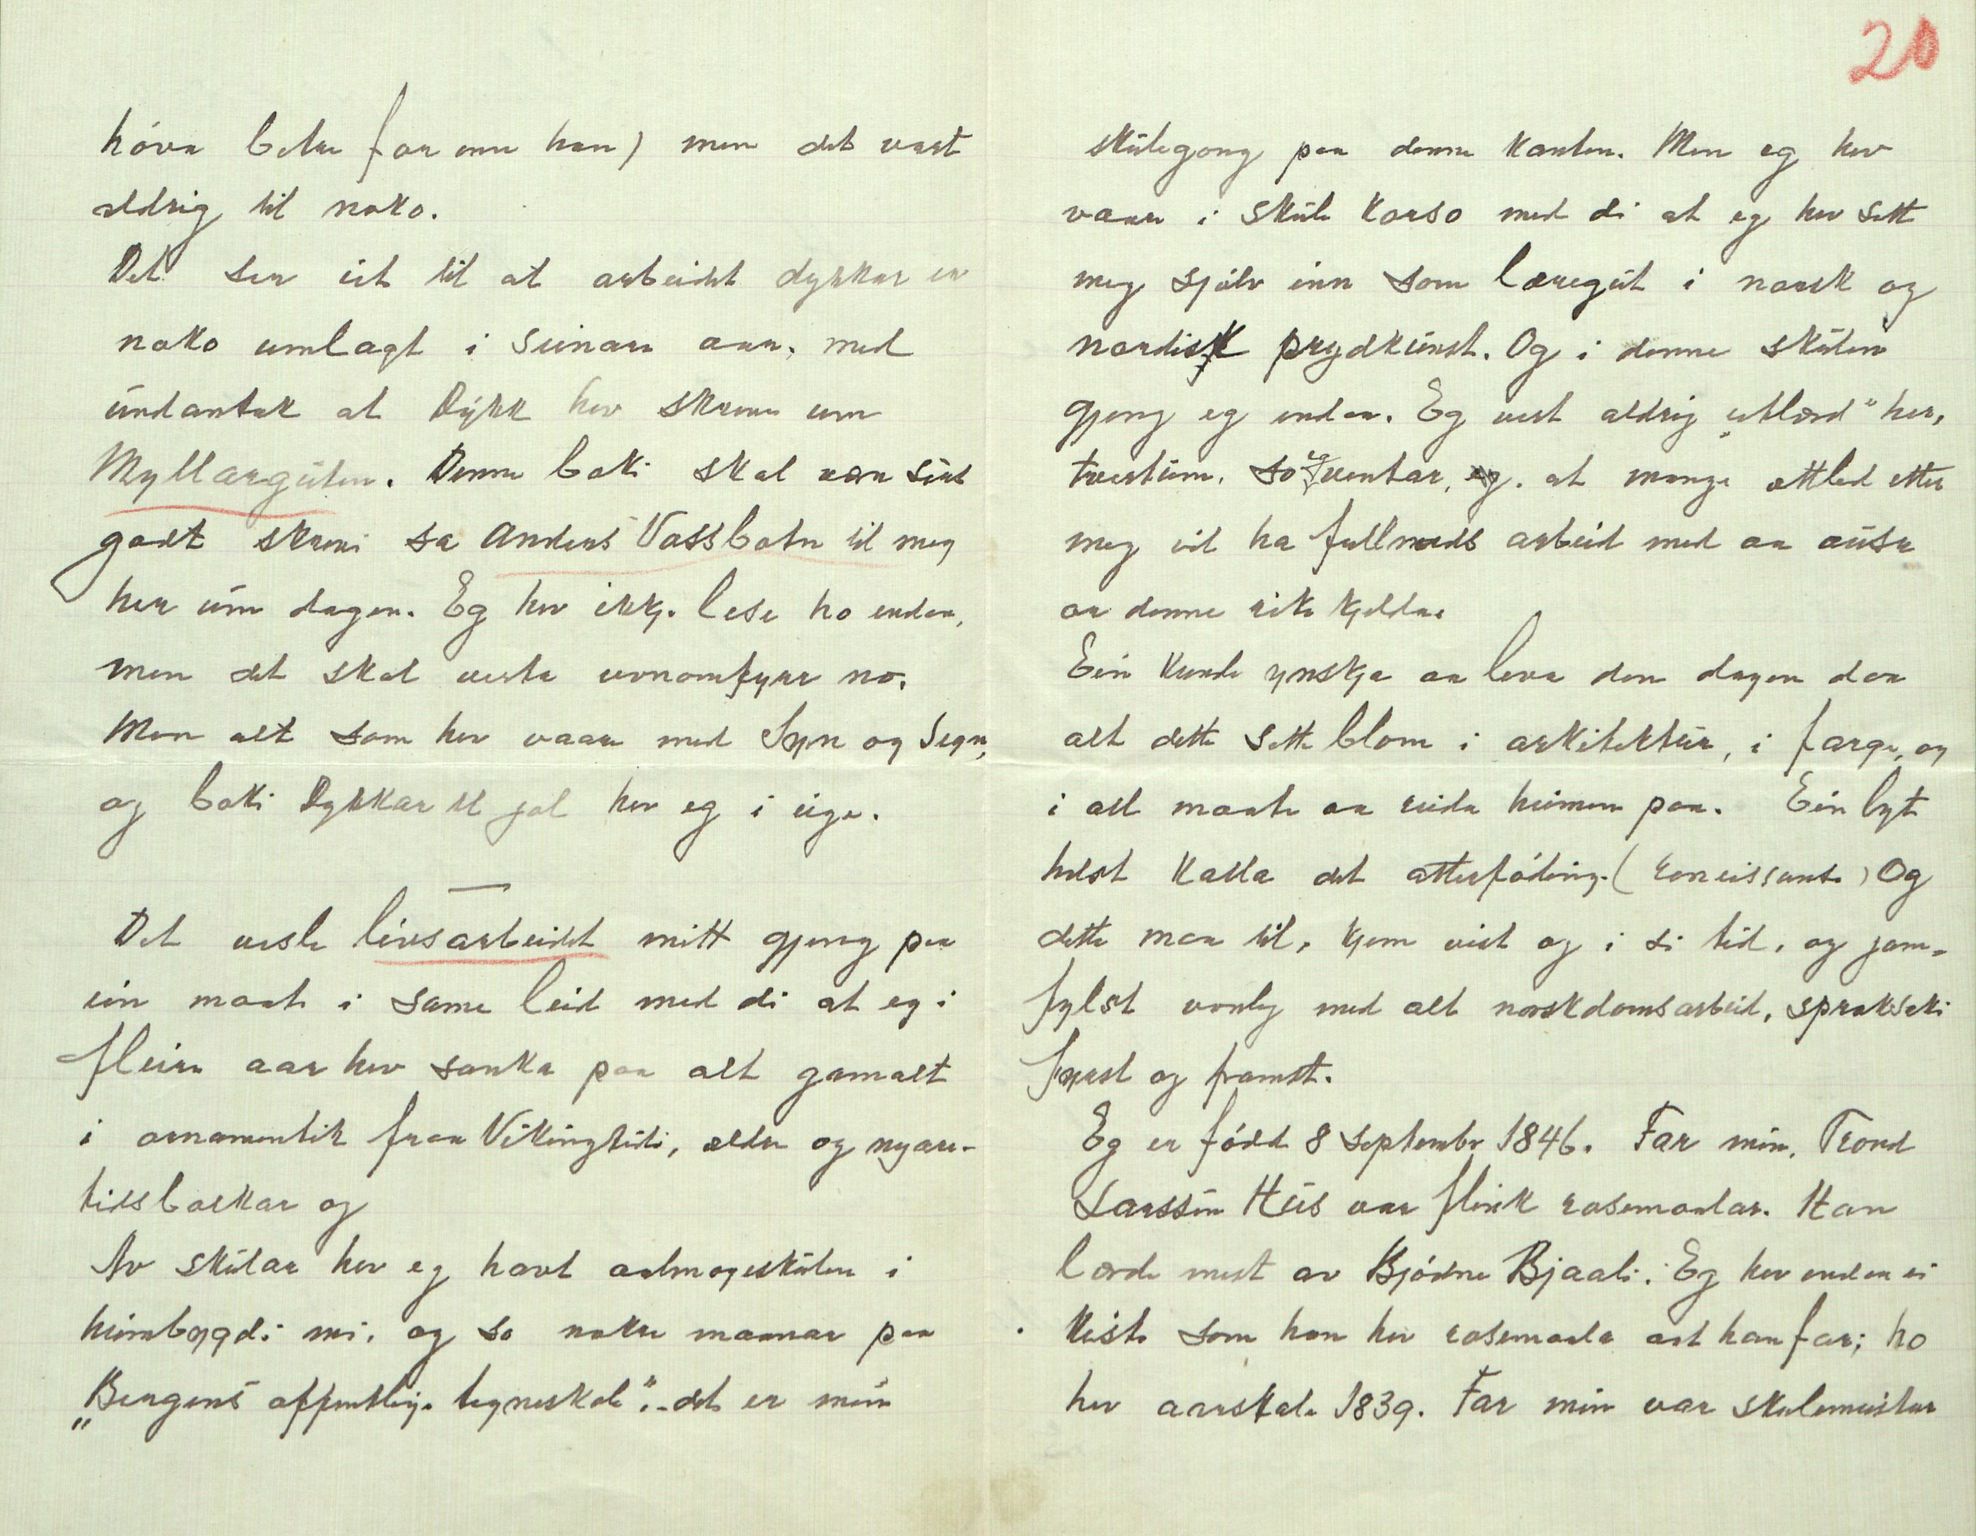 høva betre for enn han) men det vart
aldrig til noko.
Det ser ut til at arbeidet dykkar er
noko umlagt i seinare aar, med
undantak at Dykk hev skreve um
Myllarguten. Denne boki skal vera sers
godt skrevi sa Anders Vassbotn til meg
her um dagen. Eg hev ikkj. lese ho endaa,
men det skal verta vonomfyre no.
Men alt som hev vaare med Syn og Segn,
og boki Dykkar til jol hev eg i eige.
Det vesle livsarbeidet mitt gjeng paa
ein maate i same leid med di at eg i
fleire aar hev sanka paa alt gamalt
i ornamentik fraa Vikingtidi, eldre og nyare-
tidsbolkar og
Av skular hev eg havt aalmogeskulen i
heimbygdi mi, og so nokre maanar paa
„Bergens offentlige tegneskole" - det er min
20
skulegong paa denne kanten. Men eg hev
vaare i skule korso med di at eg hev sett
meg sjølv inn som læregut i norsk og
nordisk prydkunst. Og i denne skulen
gjeng eg endaa. Eg vert aldrig „utlærd" her,
tvertum, so eg ventar, at mange ættled etter
meg vil ha fullnøds arbeid med aa ausa
av denne rike kjelda.
Ein kunde ynskja aa leva den dagen daa
alt dette sette blom i arkitektur, i farge, og
i all maate aa reida heimen paa. Ein lyt
helst kalla det atterføding. (reneissanse) Og
dette maa til, kjem vist og i si tid, og jam-
fylst vonleg med alt norskdomsarbeid, spraksaki
fyrst og framst.
Eg er fødd 8 September 1846. Far min, Trond
Larssen Hus var flink rosemaalar. Han
lærde mest av Bjødne Bjaali. Eg hev endaa ei
kiste som han hev rosemaala aat han far; ho
hev aarstale 1839. Far min var skulemeister